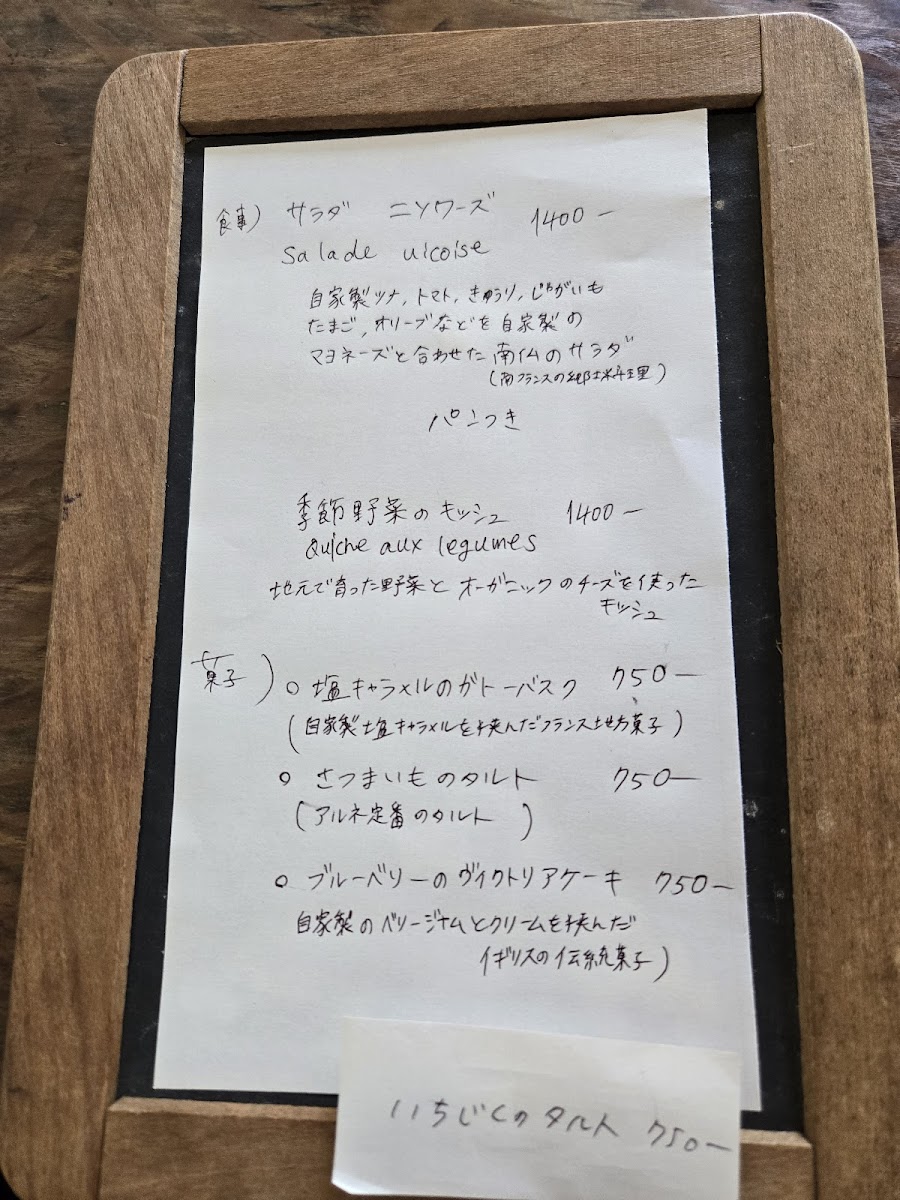 食事) サラダ ニソワーズ 1400-
Salade nicoise
自家製ツナ, トマト, きゅうり, じゃがいも
たまご, オリーブなどを自家製の
マヨネーズと合わせた南仏のサラダ
(南フランスの郷土料理)
パンつき
季節野菜のキッシュ 1400-
Quiche aux legumes
地元で育った野菜とオーガニックのチーズを使った
キッシュ
菓子) ○ 塩キャラメルのガトーバスク 750-
(自家製塩キャラメルを挟んだフランス地方菓子)
○ さつまいものタルト 750-
(アルネ定番のタルト )
○ ブルーベリーのヴィクトリアケーキ 750-
自家製のベリージャムとクリームを挟んだ
イギリスの伝統菓子)
いちじくのタルト 750-